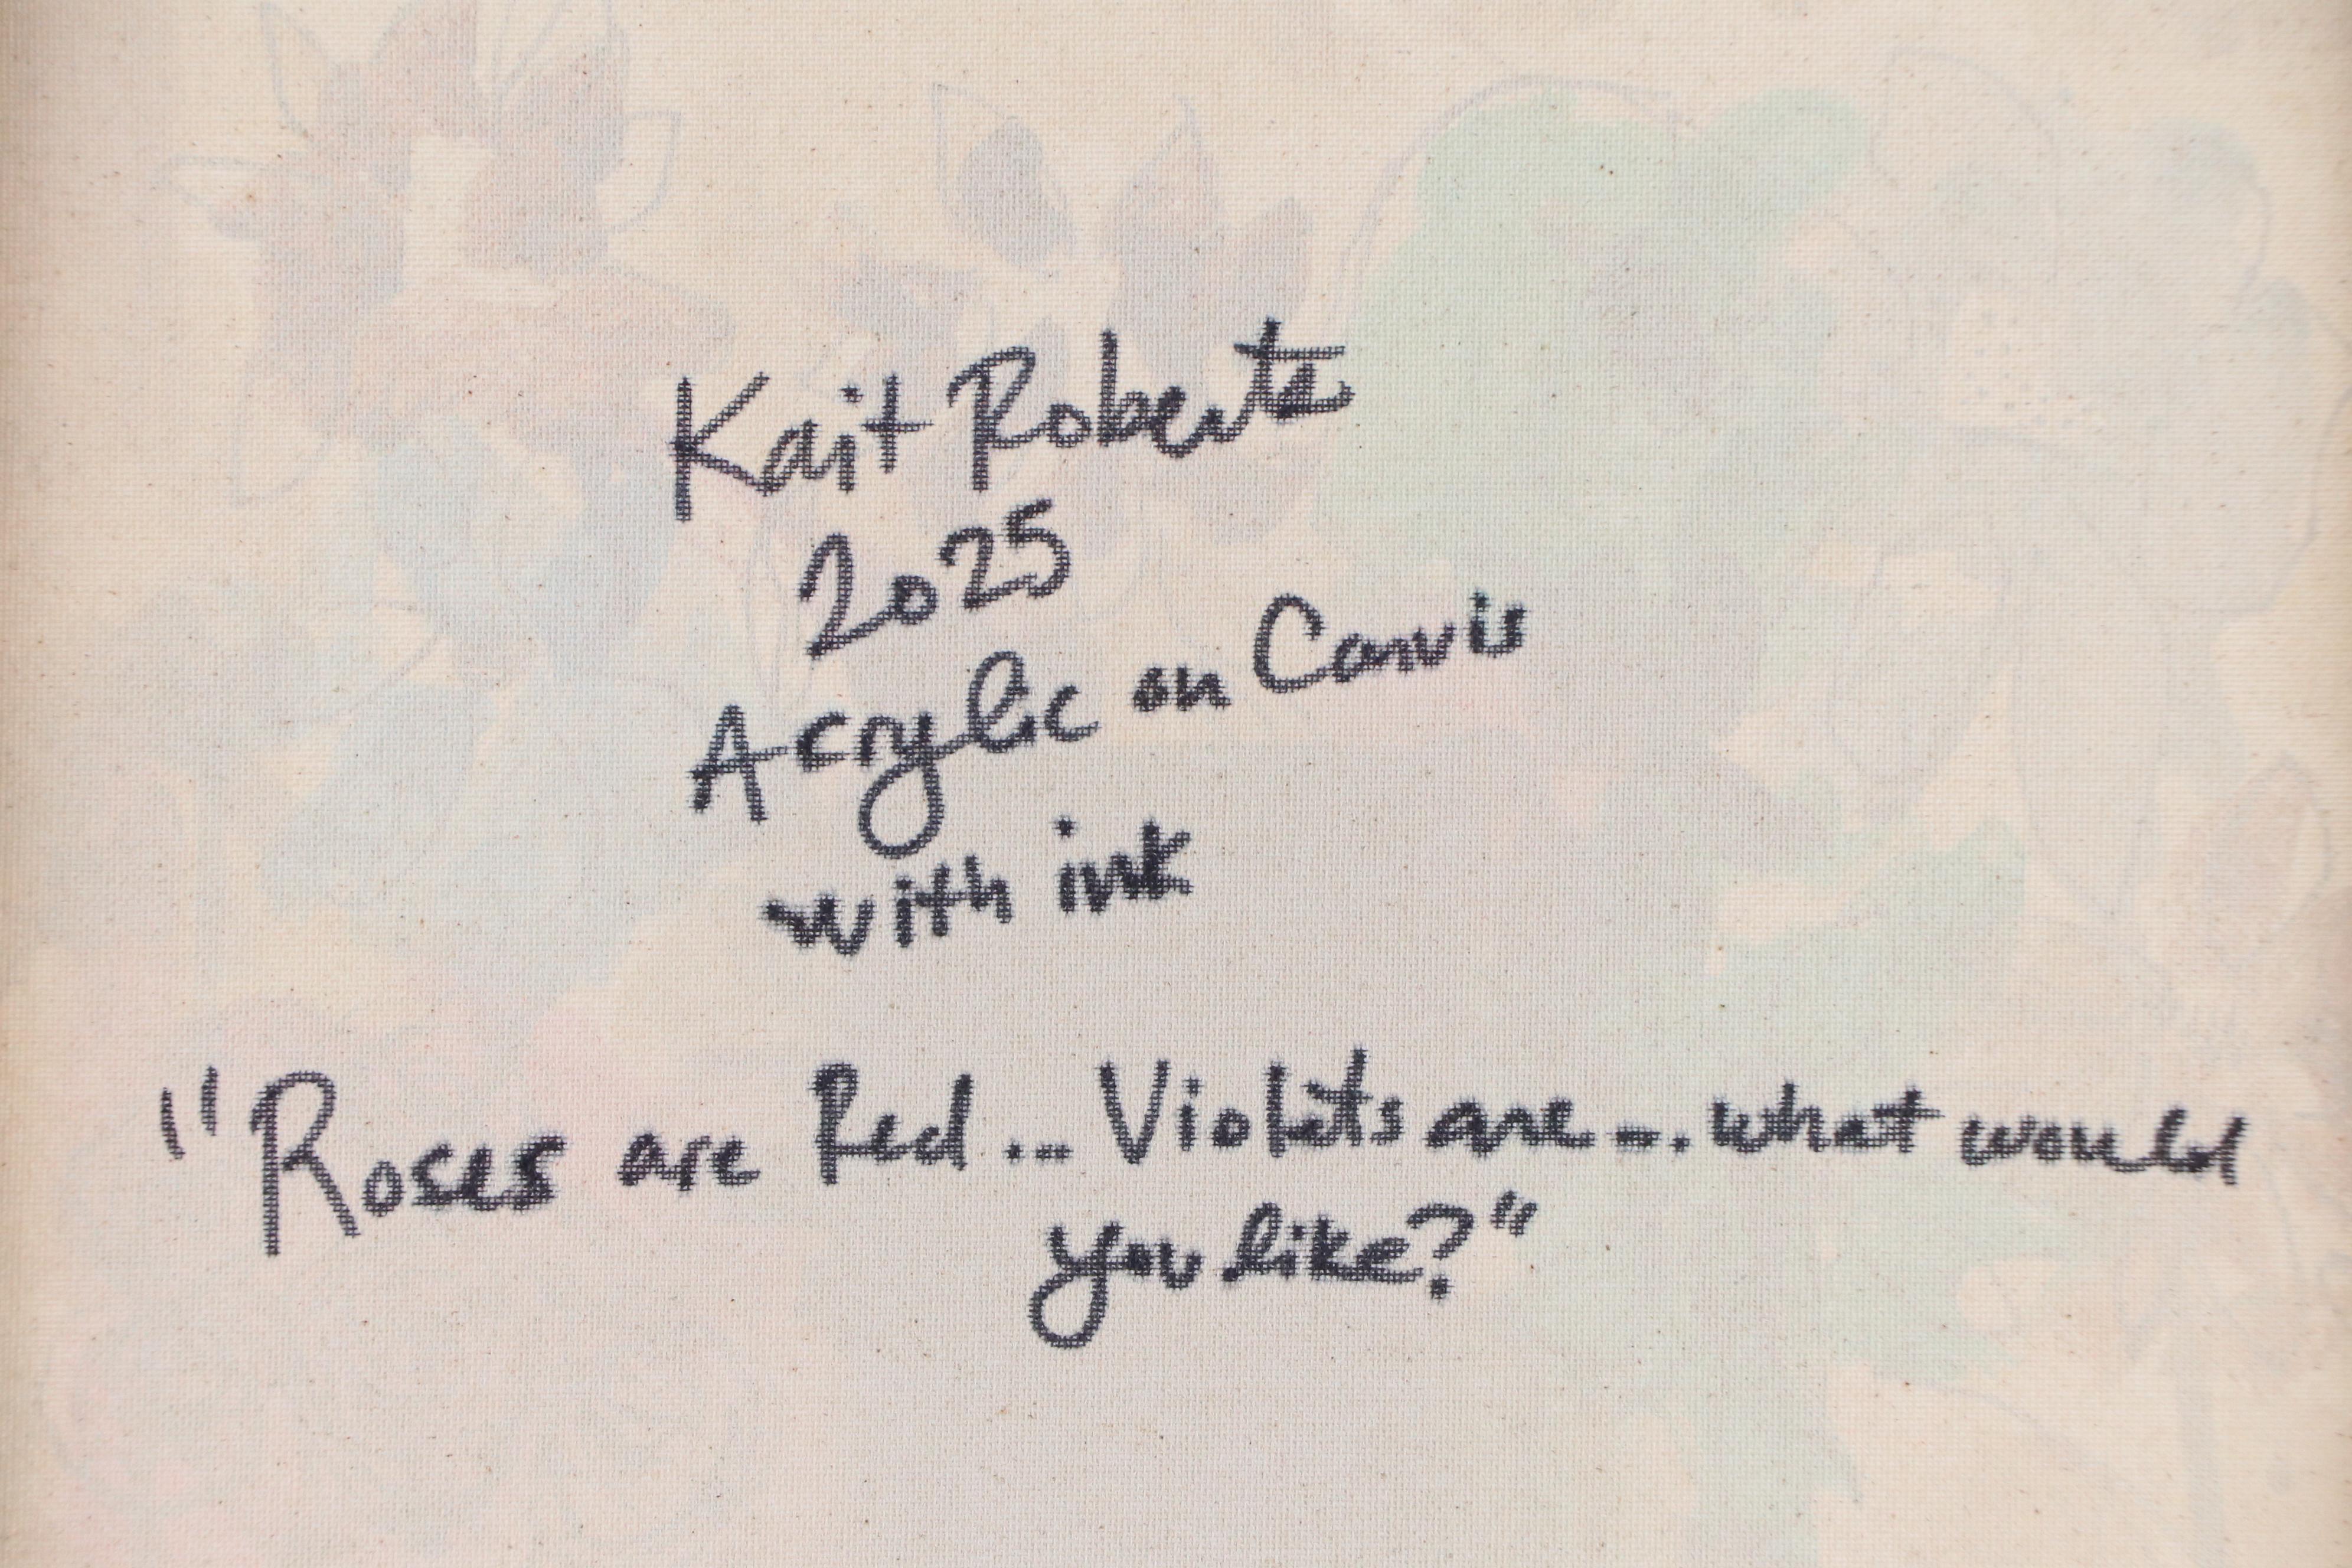 Kait Roberts
2025
Acrylic on Canvis
with ink
"Roses are Red... Violets are... what would
you like?"